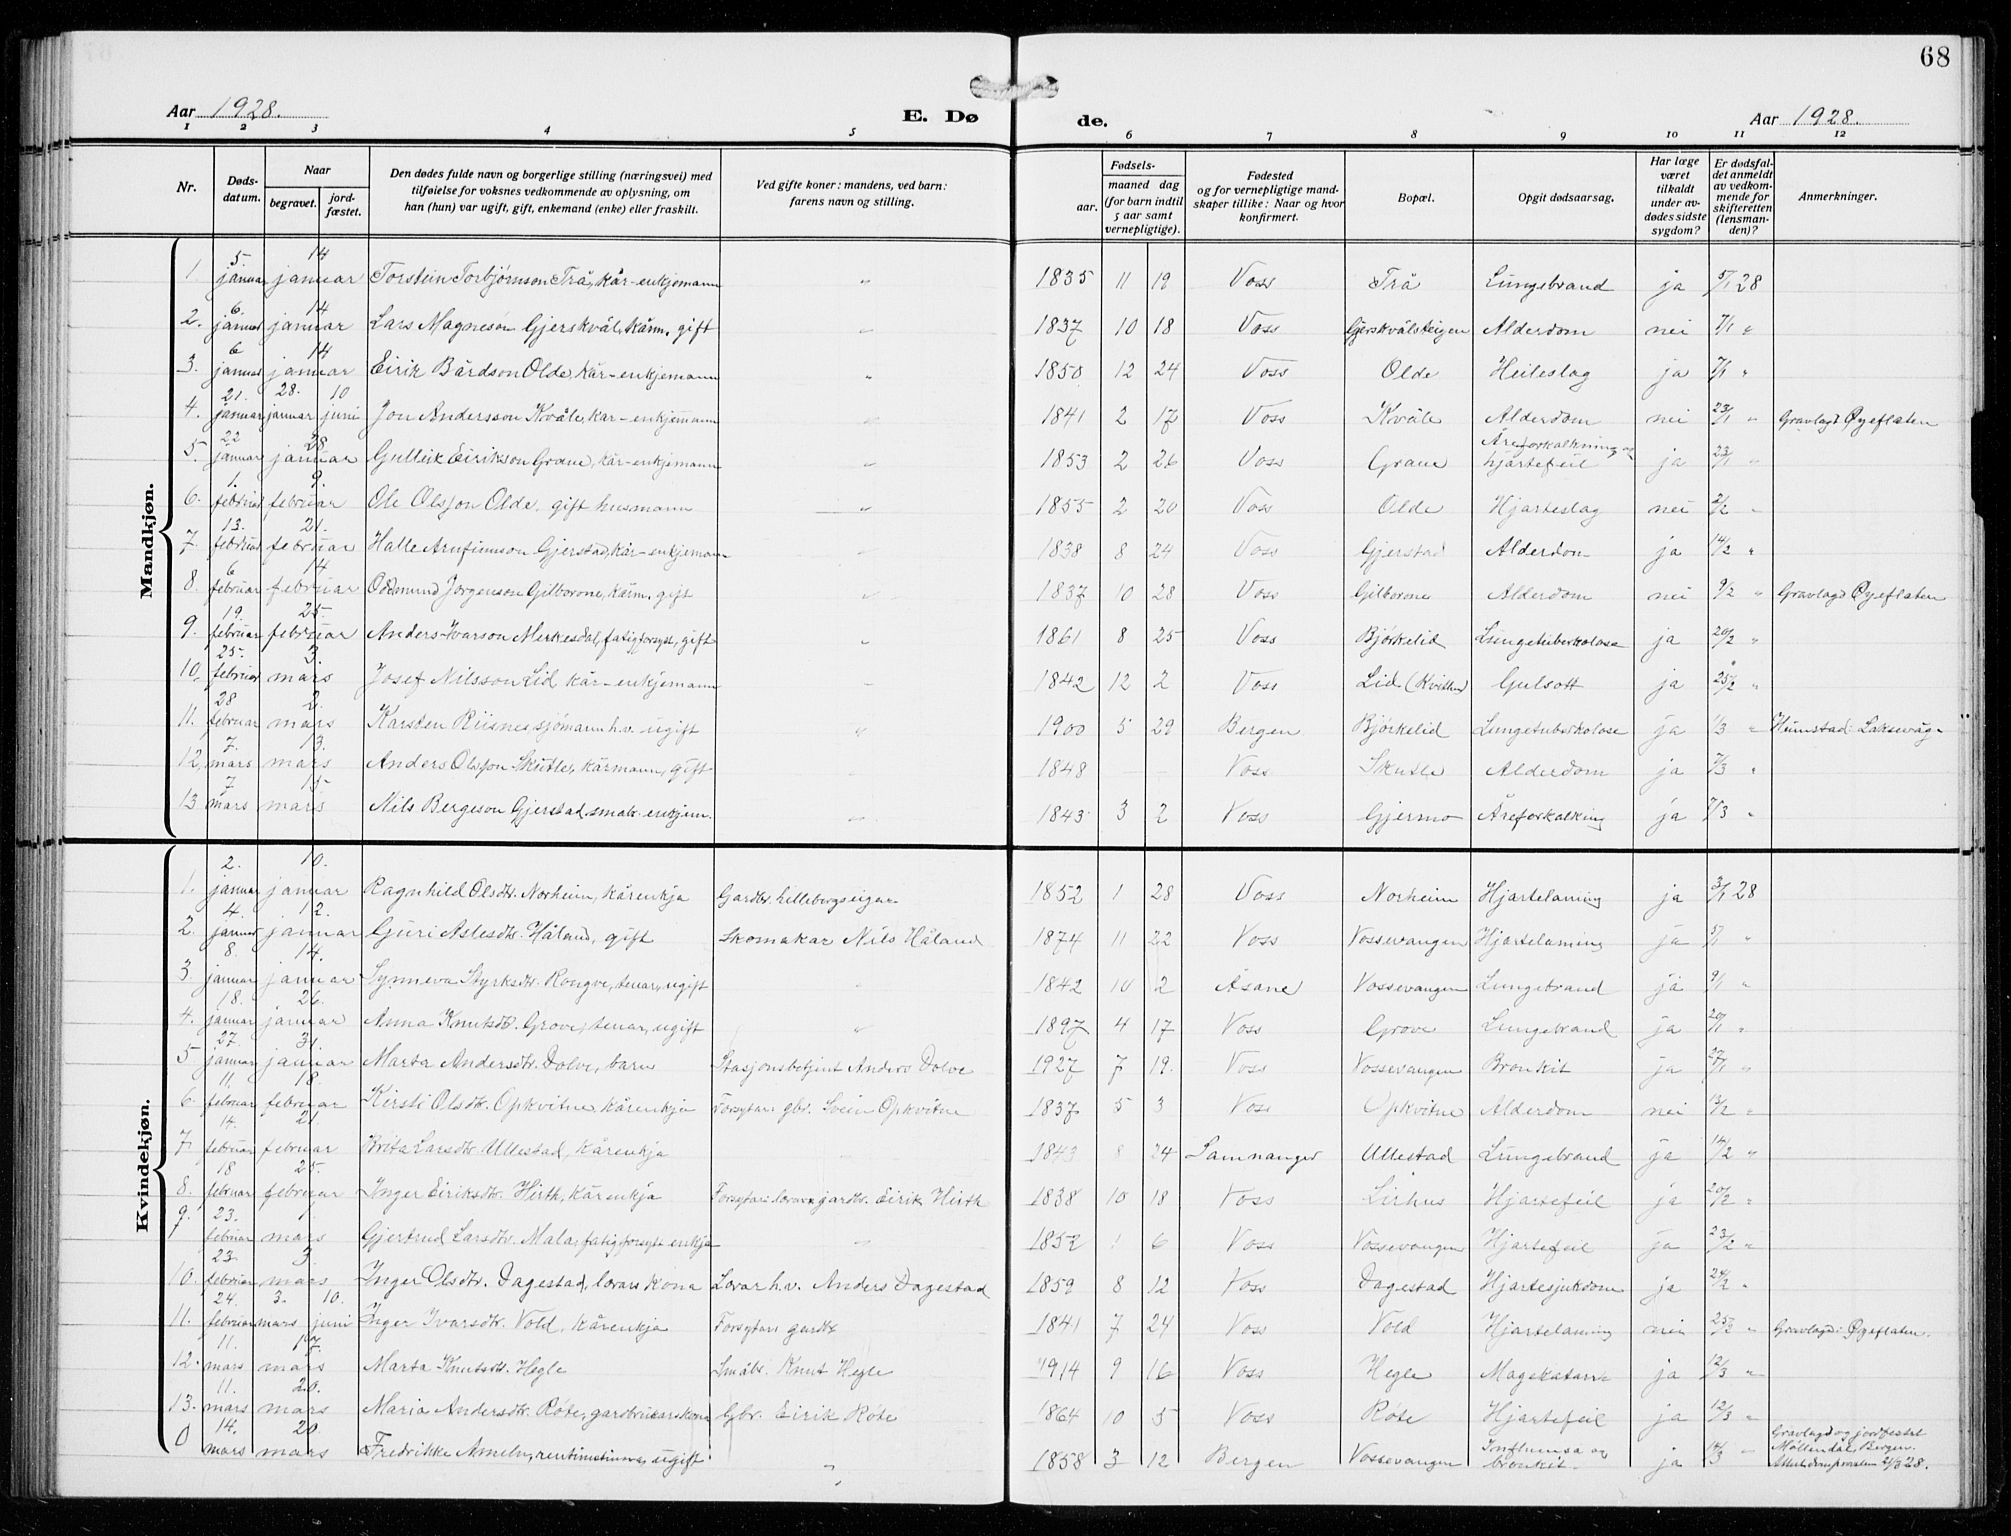 68
Aar 1928. E. Dø de. Aar 1928.
1 2 3 4 5 6 7 8 9 10 11 12
Nr. Døds-datum. Naar begravet. jord-fæstet. Den dødes fulde navn og borgerlige stilling (næringsvei) med tilføielse for voksnes vedkommende av oplysning, om han (hun) var ugift, gift, enkemand (enke) eller fraskilt. Ved gifte koner: mandens, ved barn: farens navn og stilling. Fødsels- aar. maaned dag (for barn indtil 5 aar samt vernepligtige). Fødested og for vernepligtige mand-skaper tillike: Naar og hvor konfirmert. Bopæl. Opgit dødsaarsag. Har læge været tilkaldt under av-dødes sidste sygdom? Er dødsfal-det anmeldt av vedkom-mende for skifteretten (lensman-den)? Anmerkninger.
Mandkjøn.
1. 5. januar 14 januar Torstein Torbjørnson Trå, kår-enkjemann " 1835 11 19 Voss Trå Lungebrand ja 5/1 28
2. 6. januar 14 januar Lars Magneson Gjerskvål, kårm. gift " 1837 10 18 Voss Gjerskvålsteigen Alderdom nei 7/1 "
3. 6 januar 14 januar Eirik Bårdson Olde, kår-enkjemann " 1850 12 24 Voss Olde Heileslag ja 7/1 "
4. 21. januar 28. januar 10 juni Jon Andersson Kvåle, kår-enkjemann " 1841 2 17 Voss Kvåle Alderdom nei 23/1 " Gravlagd Øyeflaten
5. 22 januar 28. januar Gulleik Eirikson Grane, kår-enkjemann " 1853 2 26 Voss Grane Åreforkalkning og hjartefeil ja 23/1 "
6. 1. februar 9. februar Ole Olsson Olde, gift husmann " 1855 2 20 Voss Olde Hjarteslag nei 2/2 "
7. 13. februar 21. februar Halle Arnfinnson Gjerstad, kår-enkjemann " 1838 8 24 Voss Gjerstad Alderdom ja 14/2 "
8. 6 februar 14 februar Odmund Jorgenson Gilborone, kårm. gift " 1837 10 28 Voss Gilborone Alderdom nei 9/2 " Gravlagd Øyeflaten
9. 19. februar 25. februar Anders Ivarson Merkesdal, fatigforsyt, gift " 1861 8 25 Voss Bjørkelid Lungetuberkolose ja 20/2 "
10. 25. februar 3. mars Josef Nilsson Lid kår-enkjemann " 1842 12 2 Voss Lid Gulsott ja 25/2 "
11. 28 februar 2. mars Karsten Riisnes, sjømann h.v. ugift " 1900 5 29 Bergen Bjørkelid Lungetuberkolose ja 1/3 " Heimstad: Laksevåg
12. 7. mars 13. mars Anders Olsson Skutle, kårmann, gift 1848 — — Voss Skutle Alderdom ja 7/3 "
13 7 mars 15 mars Nils Bergeson Gjerstad, småbr. enkjem. " 1843 3 2 Voss Gjermo Åreforkalking ja 7/3 "
Kvindekjøn.
1. 2. januar 10. januar Ragnhild Olsdtr. Norheim, kårenkja Gardbr. 1852 1 28 Voss Norheim Hjartelaming ja 3/1 28
2. 4. januar 12. januar Guri Aslesdtr. Håland, gift Skomakar Nils Håland 1874 11 22 Voss Vossevangen Hjartelaming ja 5/1 "
3. 8. januar 14. januar Synneva Styrksdtr. Rongve, tenar, ugift " 1842 10 2 Åsane Vossevangen Lungebrand ja 9/1 "
4. 18. januar 26. januar Anna Knutsdtr. Grove, tenar, ugift " 1897 4 17 Voss Grove Lungebrand ja 20/1 "
5 27. januar 31. januar Marta Andersdtr. Dolve, barn Stasjonsbetjent Anders Dolve 1927 7 19. Voss Vossevangen Bronkit ja 27/1 "
6. 11. februar 18. februar Kirsti Olsdtr. Opkvitne, kårenkja Forsytar: gbr. Svein Opkvitne 1837 5 3 Voss Opkvitne Alderdom nei 13/2 "
7. 14. februar 21. februar Brita Larsdtr. Ullestad, kårenkja 1843 8 24 Samnanger Ullestad Lungebrand ja 14/2 "
8. 18 februar 25. februar Inger Eiriksdtr. Hirth, kårenkja Forsytar: gardbr. Eirik Hirth 1838 10 18 Voss Lirhus Hjartefeil ja 20/2 "
9. 23. februar 1. mars Gjertrud Larsdtr. Mala, fatigforsytt enkja " 1852 1 6 Voss Vossevangen Hjartefeil ja 23/2 "
10. 23. februar 3. mars Inger Olsdtr. Dagestad, lærars kona Lærar h.v. Anders Dagestad 1859 8 12 Voss Dagestad Hjartesjukdom ja 24/2 "
11. 24. februar 3. mars 10. juni Inger Ivarsdtr. Vold, kårenkja Forsytar: gardbr 1841 7 24 Voss Vold Hjartelaming nei 25/2 " Gravlagd: Øyeflaten.
12. 11. mars 17. mars Marta Knutsdtr. Hegle Småbr. Knut Hegle 1914 9 16 Voss Hegle Magekatarr ja 12/3 "
13. 11. mars 20. mars Maria Andersdtr. Røte, gardbrukarskona Gbr. Eirik Røte 1864 10 5 Voss Røte Hjartefeil ja 12/3 "
0 14. mars 20 mars Fredrikke Ameln, ugift " 1858 3 12 Bergen Vossevangen Influensa og bronkit ja 14/3 " Gravlagd og jordfestet Møllendal Bergen. 21/3 28.